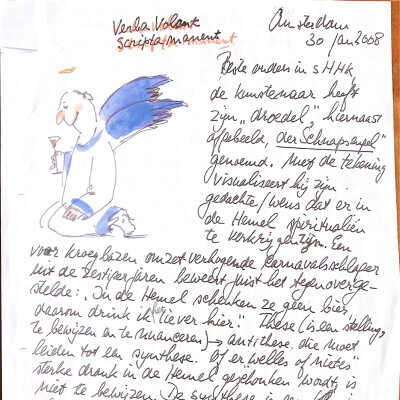 Verba Volant
scripta manent
Amsterdam
30 jan 2008
Beste orders in sHHK
de kunstenaar heeft
zijn „droedel„ hiernaast
afgebeeld, „der Schnapsengel"
genoemd. Met de tekening
visualiseert hij zijn
gedachte/wens dat er in
de Hemel spiritualiën
te verkrijgen zijn. Een
voor kroegbazen omzet verhogende Karnavalsschlager
uit de zestiger jaren beweert juist het tegenoverge-
stelde: „In de Hemel schenken ze geen bier,
daarom drink ik liever hier." These (is een stelling,
te bewijzen en te nuanceren) → antithese, die moet
leiden tot een synthese. Of er welles of nietes
sterke drank in de Hemel geschonken wordt, is
niet te bewijzen. De synthese is